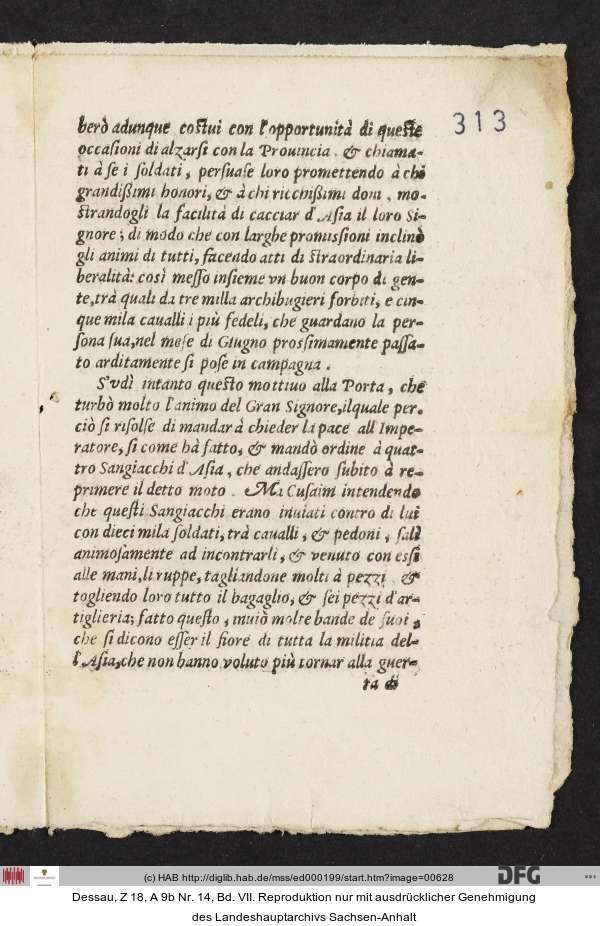 313
berò adunque costui con l'opportunità di queste
occasioni di alzarsi con la Prouincia. & chiama-
ti à se i soldati, persuase loro promettendo à chi
grandißimi honori, & à chi ricchißimi doni, mo-
strandogli la facilità di cacciar d'Asia il loro Si-
gnore; di modo che con larghe promissioni inclinò
gli animi di tutti, facendo atti di straordinaria li-
beralità: così messo insieme vn buon corpo di gen-
te, trà quali da tre milla archibugieri forbiti, e cin-
que mila caualli i più fedeli, che guardano la per-
sona sua, nel mese di Giugno prossimamente passa-
to arditamente si pose in campagna.
S'vdì intanto questo mottiuo alla Porta, che
turbò molto l'animo del Gran Signore, ilquale per.
ciò si risolse di mandar à chieder la pace all'Impe-
ratore, si come hà fatto, & mandò ordine à quat-
tro Sangiacchi d'Asia, che andassero subito à re-
primere il detto moto. Ma Cusaim intendendo
che questi Sangiacchi erano inuiati contro di lui
con dieci mila soldati, trà caualli, & pedoni, salì
animosamente ad incontrarli, & venuto con essi
alle mani, li ruppe, tagliandone molti à pezzi &
togliendo loro tutto il bagaglio, & sei pezzi d'ar-
tiglieria; fatto questo, inuiò molte bande de suoi,
che si dicono esser il fiore di tutta la militia del-
l'Asia, che non hanno voluto più tornar alla guer-
ra &
(c) HAB http://diglib.hab.de/mss/ed000199/start.htm?image=00628
DFG
Dessau, Z 18, A 9b Nr. 14, Bd. VII. Reproduktion nur mit ausdrücklicher Genehmigung
des Landeshauptarchivs Sachsen-Anhalt